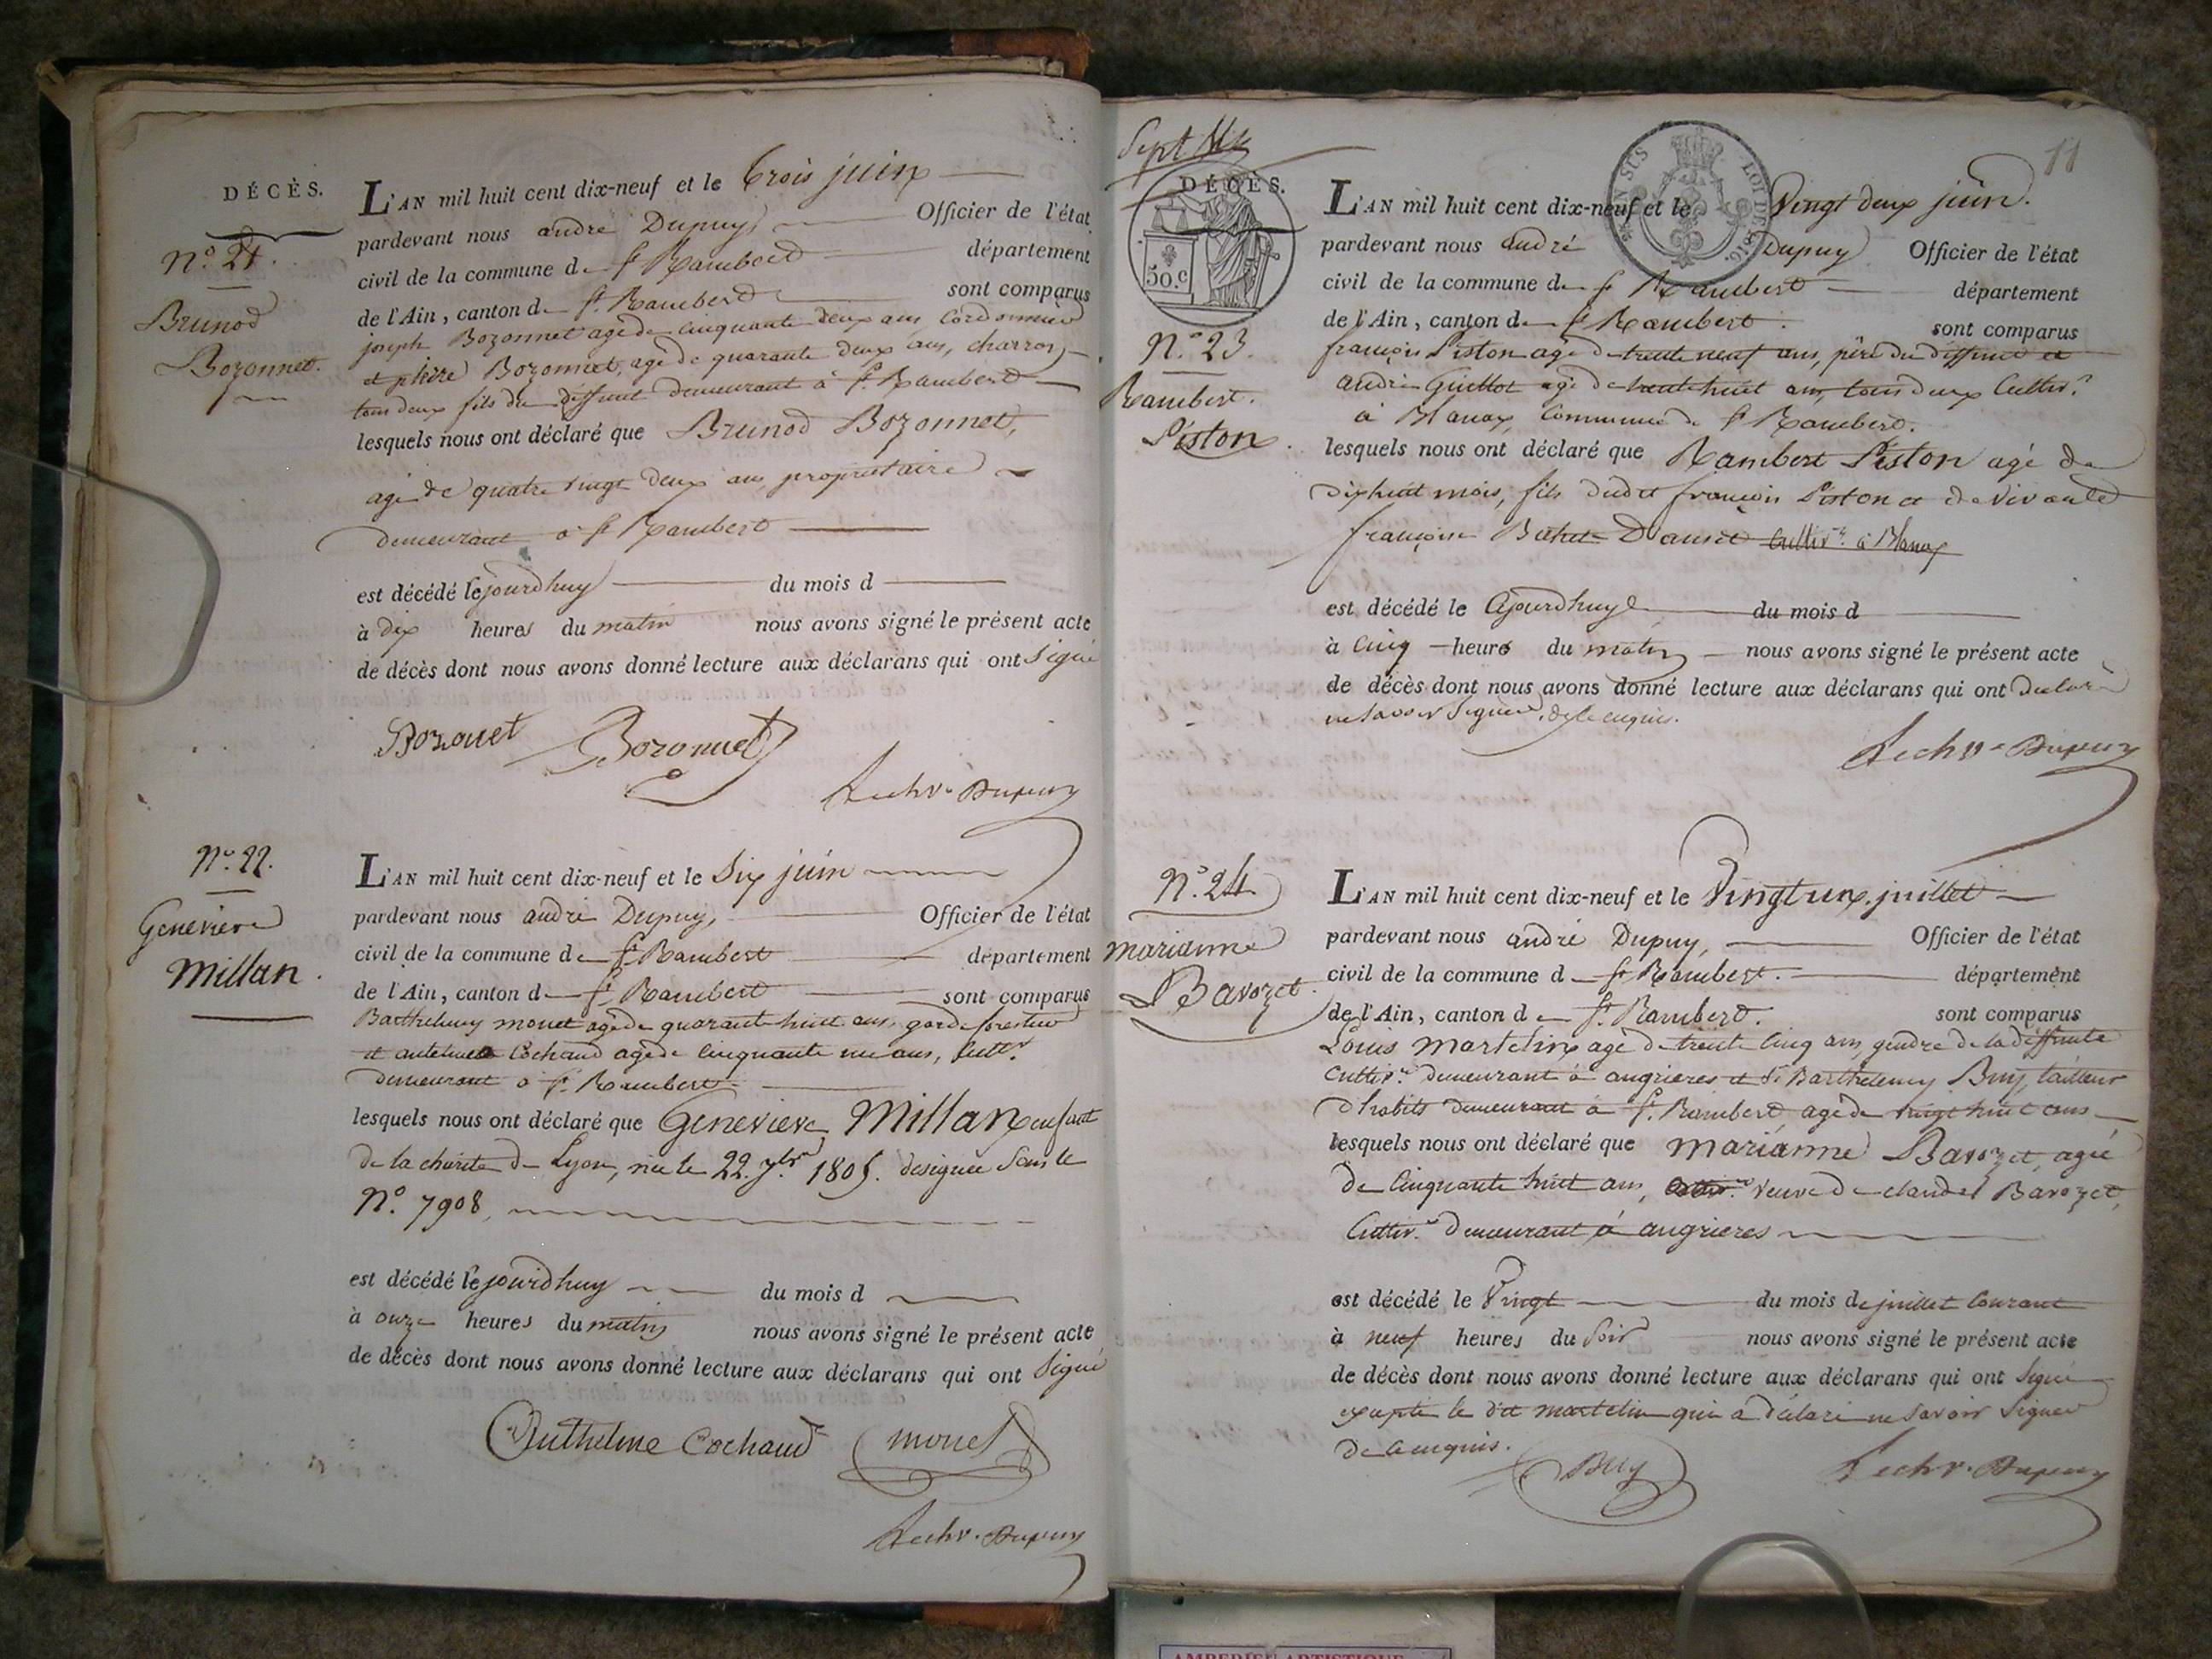 DÉCÈS.
N.° 21.
Brunod
Bozonnet.
L'AN mil huit cent dix-neuf et le trois juin
pardevant nous andré Dupuy, Officier de l'état
civil de la commune de St Rambert département
de l'Ain, canton de St. Rambert sont comparus
joseph Bozonnet agé de Cinquante deux ans, Cordonnier
et Bozonnet, agé de quarante deux ans, charron,
tous deux fils du deffunt demeurant à St. Rambert
lesquels nous ont déclaré que Brunod Bozonnet,
agé de quatre vingt deux ans, proprietaire
demeurant à St Rambert
est décédé le jourdhuy du mois d
à dix heures du matin nous avons signé le présent acte
de décès dont nous avons donné lecture aux déclarans qui ont Signé
Bozonet Bozonnet
Dupuy
N.° 22.
Genevieve
Millan.
L'AN mil huit cent dix-neuf et le Six juin
pardevant nous andré Dupuy, Officier de l'état
civil de la commune de St Rambert département
de l'Ain, canton de St. Rambert sont comparus
Barthelemy monet agé de quarante huit ans, garde forestier
et antelme Cochaud agé de Cinquante un ans, Cultr.
demeurant à St. Rambert
lesquels nous ont déclaré que Genevieve Millan enfant
de la charité de Lyon, née le 22. 7bre 1805. designée Sous le
N.° 7908,
est décédé le jourdhuy du mois d
à onze heures du matin nous avons signé le présent acte
de décès dont nous avons donné lecture aux déclarans qui ont Signé
Anthelme Cochaud monet
Dupuy
Sept
11
DÉCÈS.
50.c
LOI DE 1816.
N.° 23.
Rambert.
Piston.
L'AN mil huit cent dix-neuf et le Vingt deux juin.
pardevant nous andré Dupuy Officier de l'état
civil de la commune de St Rambert département
de l'Ain, canton de St Rambert. sont comparus
françois Piston agé de trente neuf ans, père du deffunt et
andré Guillot agé de trente huit ans, tous deux Cultivr.
à Blanax, Commune de St Rambert.
lesquels nous ont déclaré que Rambert Piston agé de
dixhuit mois, fils dudit françois Piston et de vivante
françoise Cultivr. à Blanax
est décédé le Cejourdhuy du mois d
à Cinq heures du matin nous avons signé le présent acte
de décès dont nous avons donné lecture aux déclarans qui ont declaré
ne Savoir Signer, de ce enquis.
Dupuy
N.° 24
marianne
Bavozet.
L'AN mil huit cent dix-neuf et le Vingt un juillet
pardevant nous andré Dupuy, Officier de l'état
civil de la commune de St Rambert. département
de l'Ain, canton de St. Rambert. sont comparus
Louis martelin agé de trente Cinq ans, gendre de la deffunte
Cultivr. demeurant à angrieres et Sr. Barthelemy Buy, tailleur
d'habits demeurant à St. Rambert, agé de vingt huit ans
lesquels nous ont déclaré que marianne Bavozet, agée
de Cinquante huit ans, veuve de claude Bavozet,
Cultivr. demeurant à angrieres
est décédé le Vingt du mois de juillet Courant
à neuf heures du Soir nous avons signé le présent acte
de décès dont nous avons donné lecture aux déclarans qui ont Signé
excepté le dit martelin qui a declaré ne Savoir Signer
de ce enquis.
Buy
Dupuy